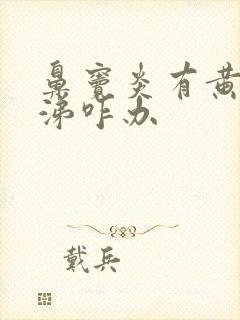 鼻窦炎有黄
涕咋办
戴兵